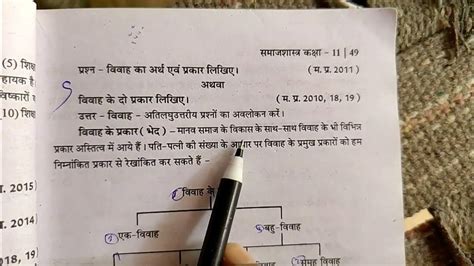 समाजशास्त्र कक्षा - 11 | 49
प्रश्न - विवाह का अर्थ एवं प्रकार लिखिए। ( म. प्र. 2011 )
अथवा
विवाह के दो प्रकार लिखिए। ( म. प्र. 2010, 18, 19 )
उत्तर - विवाह - अतिलघुउत्तरीय प्रश्नों का अवलोकन करें।
विवाह के प्रकार ( भेद ) - मानव समाज के विकास के साथ-साथ विवाह के भी विभिन्न
प्रकार अस्तित्व में आये हैं। पति-पत्नी की संख्या के आधार पर विवाह के प्रमुख प्रकारों को हम
निम्नांकित प्रकार से रेखांकित कर सकते हैं -
विवाह के
एक-विवाह
बहु-विवाह
समूह विवाह
(5) शिक्षा
हायक है
10) शिक्षा
2015)
2014)
018, 19)